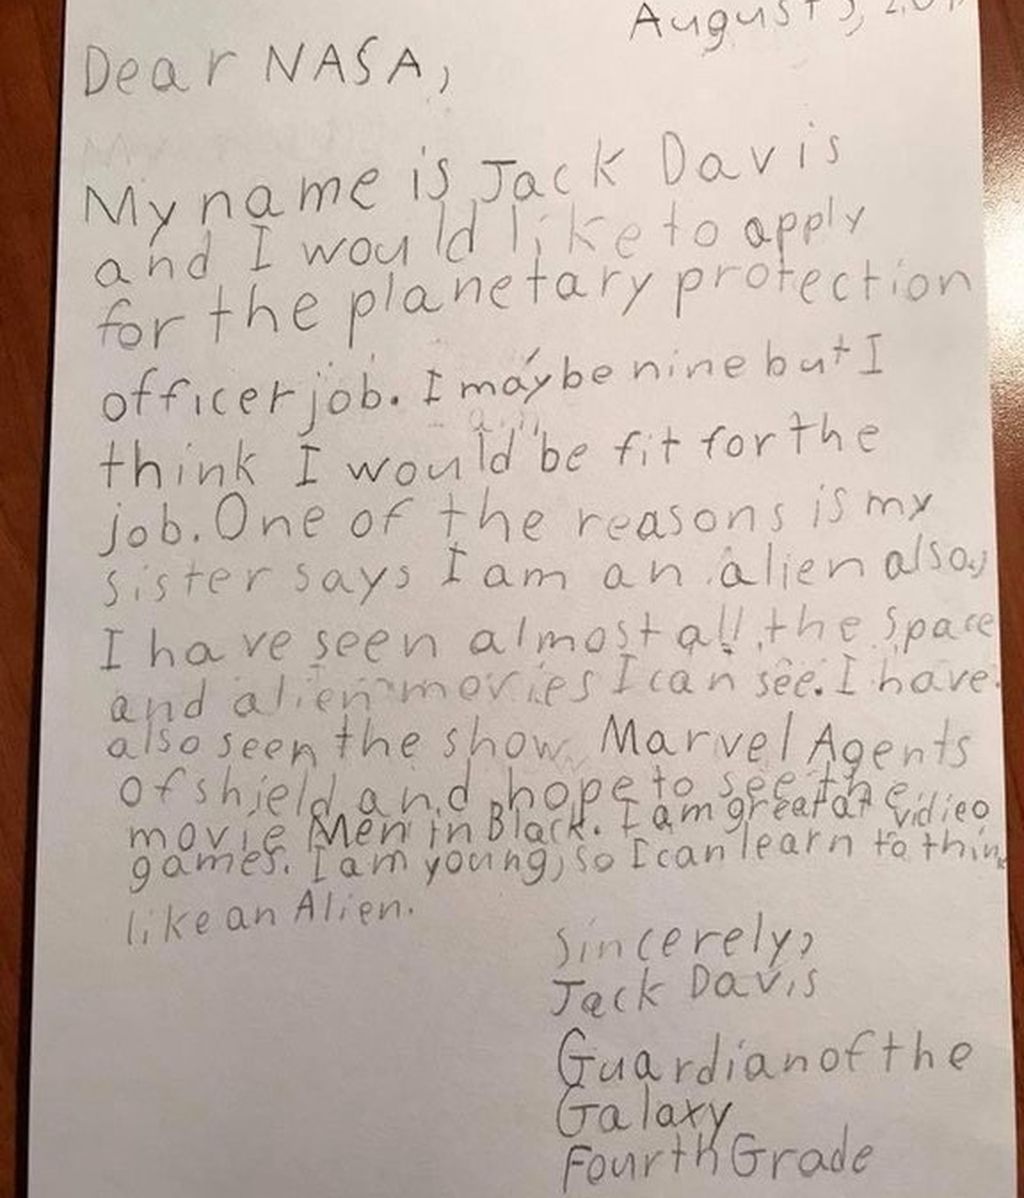 August 3,
Dear NASA,
My name is Jack Davis
and I would like to apply
for the planetary protection
officer job. I may be nine but I
think I would be fit for the
job. One of the reasons is my
sister says I am an alien also,
I have seen almost all the space
and alien movies I can see. I have
also seen the show Marvel Agents
of shield and hope to see the
movie Men in Black. I am great at vidieo
games. I am young, so I can learn to think
like an Alien.
Sincerely,
Jack Davis
Guardian of the
Galaxy
Fourth Grade